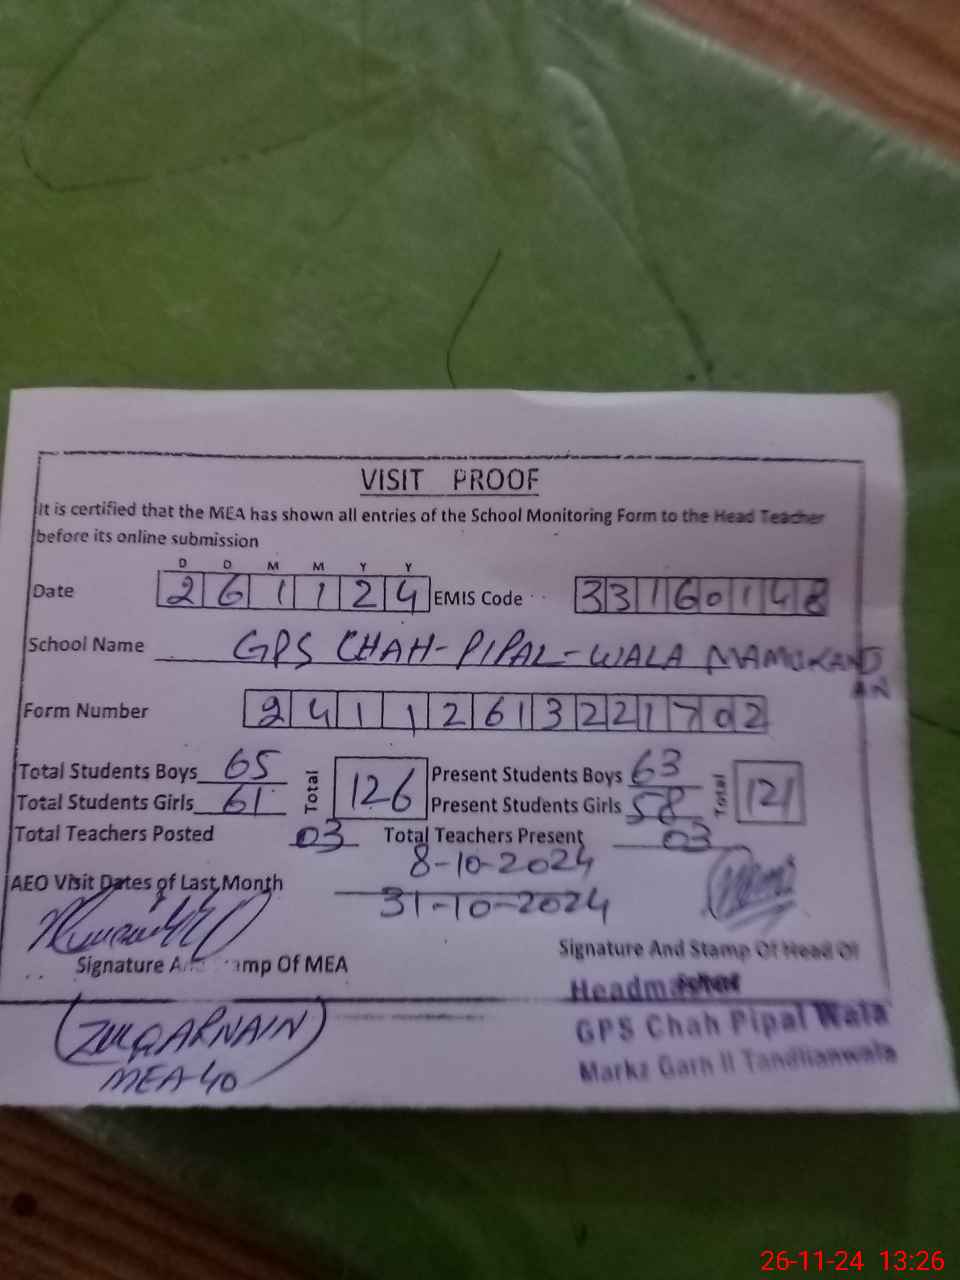 VISIT PROOF
It is certified that the MEA has shown all entries of the School Monitoring Form to the Head Teacher
before its online submission
D D M M Y Y
Date 261124 EMIS Code 33160148
School Name GPS CHAH-PIPAL-WALA MAMUKANJ
AN
Form Number 24112613221702
Total Students Boys 65 Total 126 Present Students Boys 63 Total 121
Total Students Girls 61 Present Students Girls 58
Total Teachers Posted 03 Total Teachers Present 03
8-10-2024
AEO Visit Dates of Last Month
31-10-2024
Signature And Stamp Of Head Of
Signature And Stamp Of MEA
Headmaster
GPS Chah Pipal Wala
Markz Garh II Tandlianwala
ZULQARNAIN
MEA-40
26-11-24 13:26